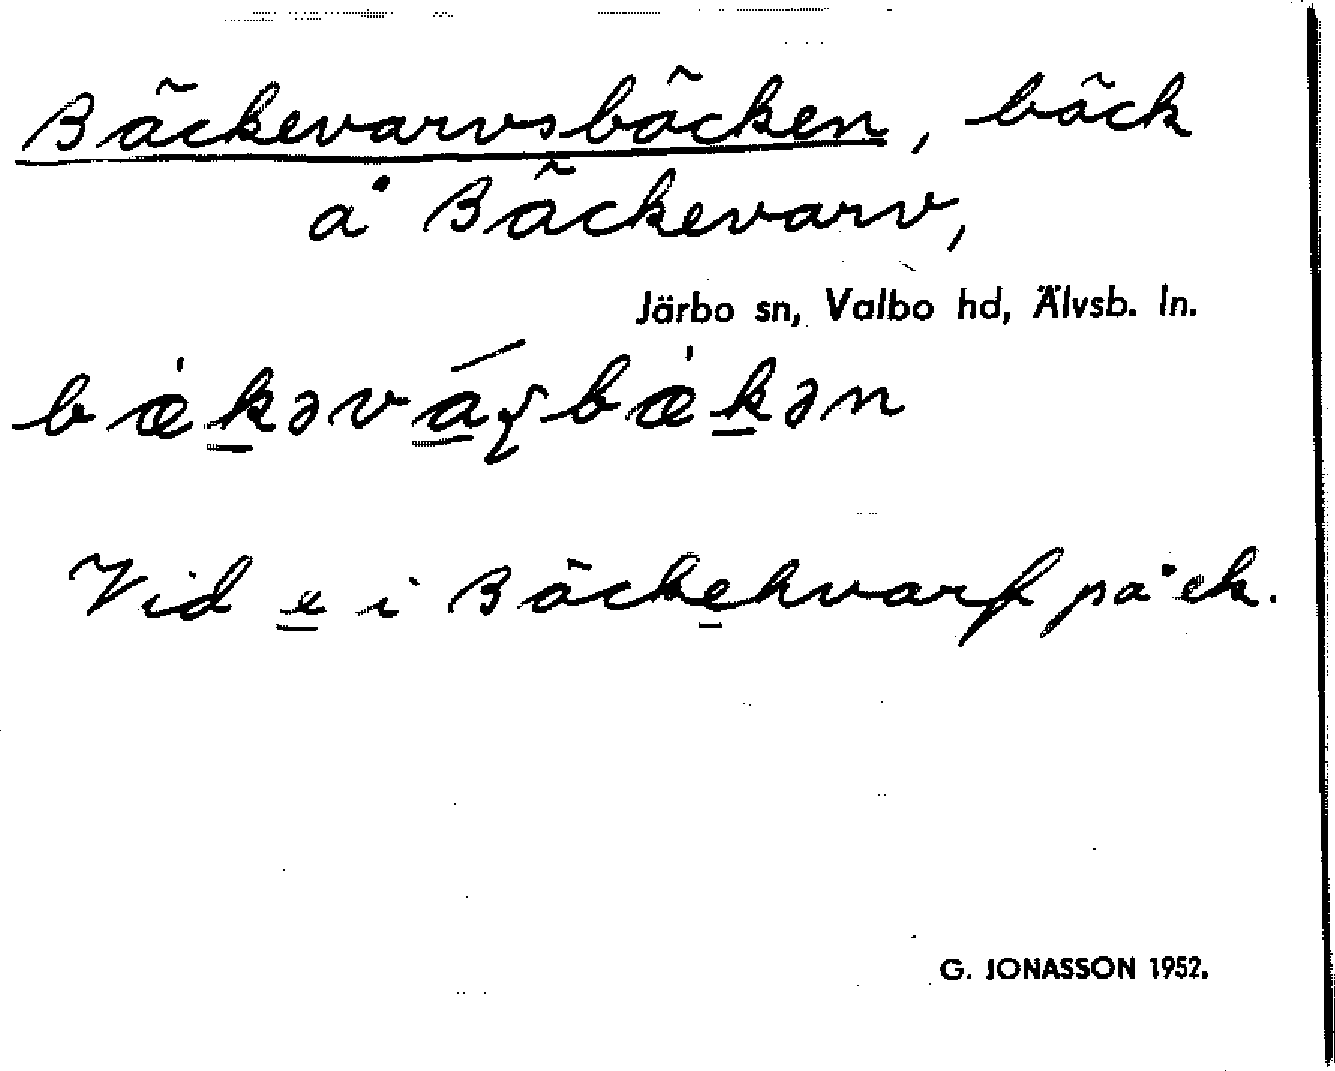 Bäckevarvsbäcken, bäck
å Bäckevarv,
Järbo sn, Valbo hd, Älvsb. ln.
Vid e i Bäckehvarf på ek.
G. JONASSON 1952.